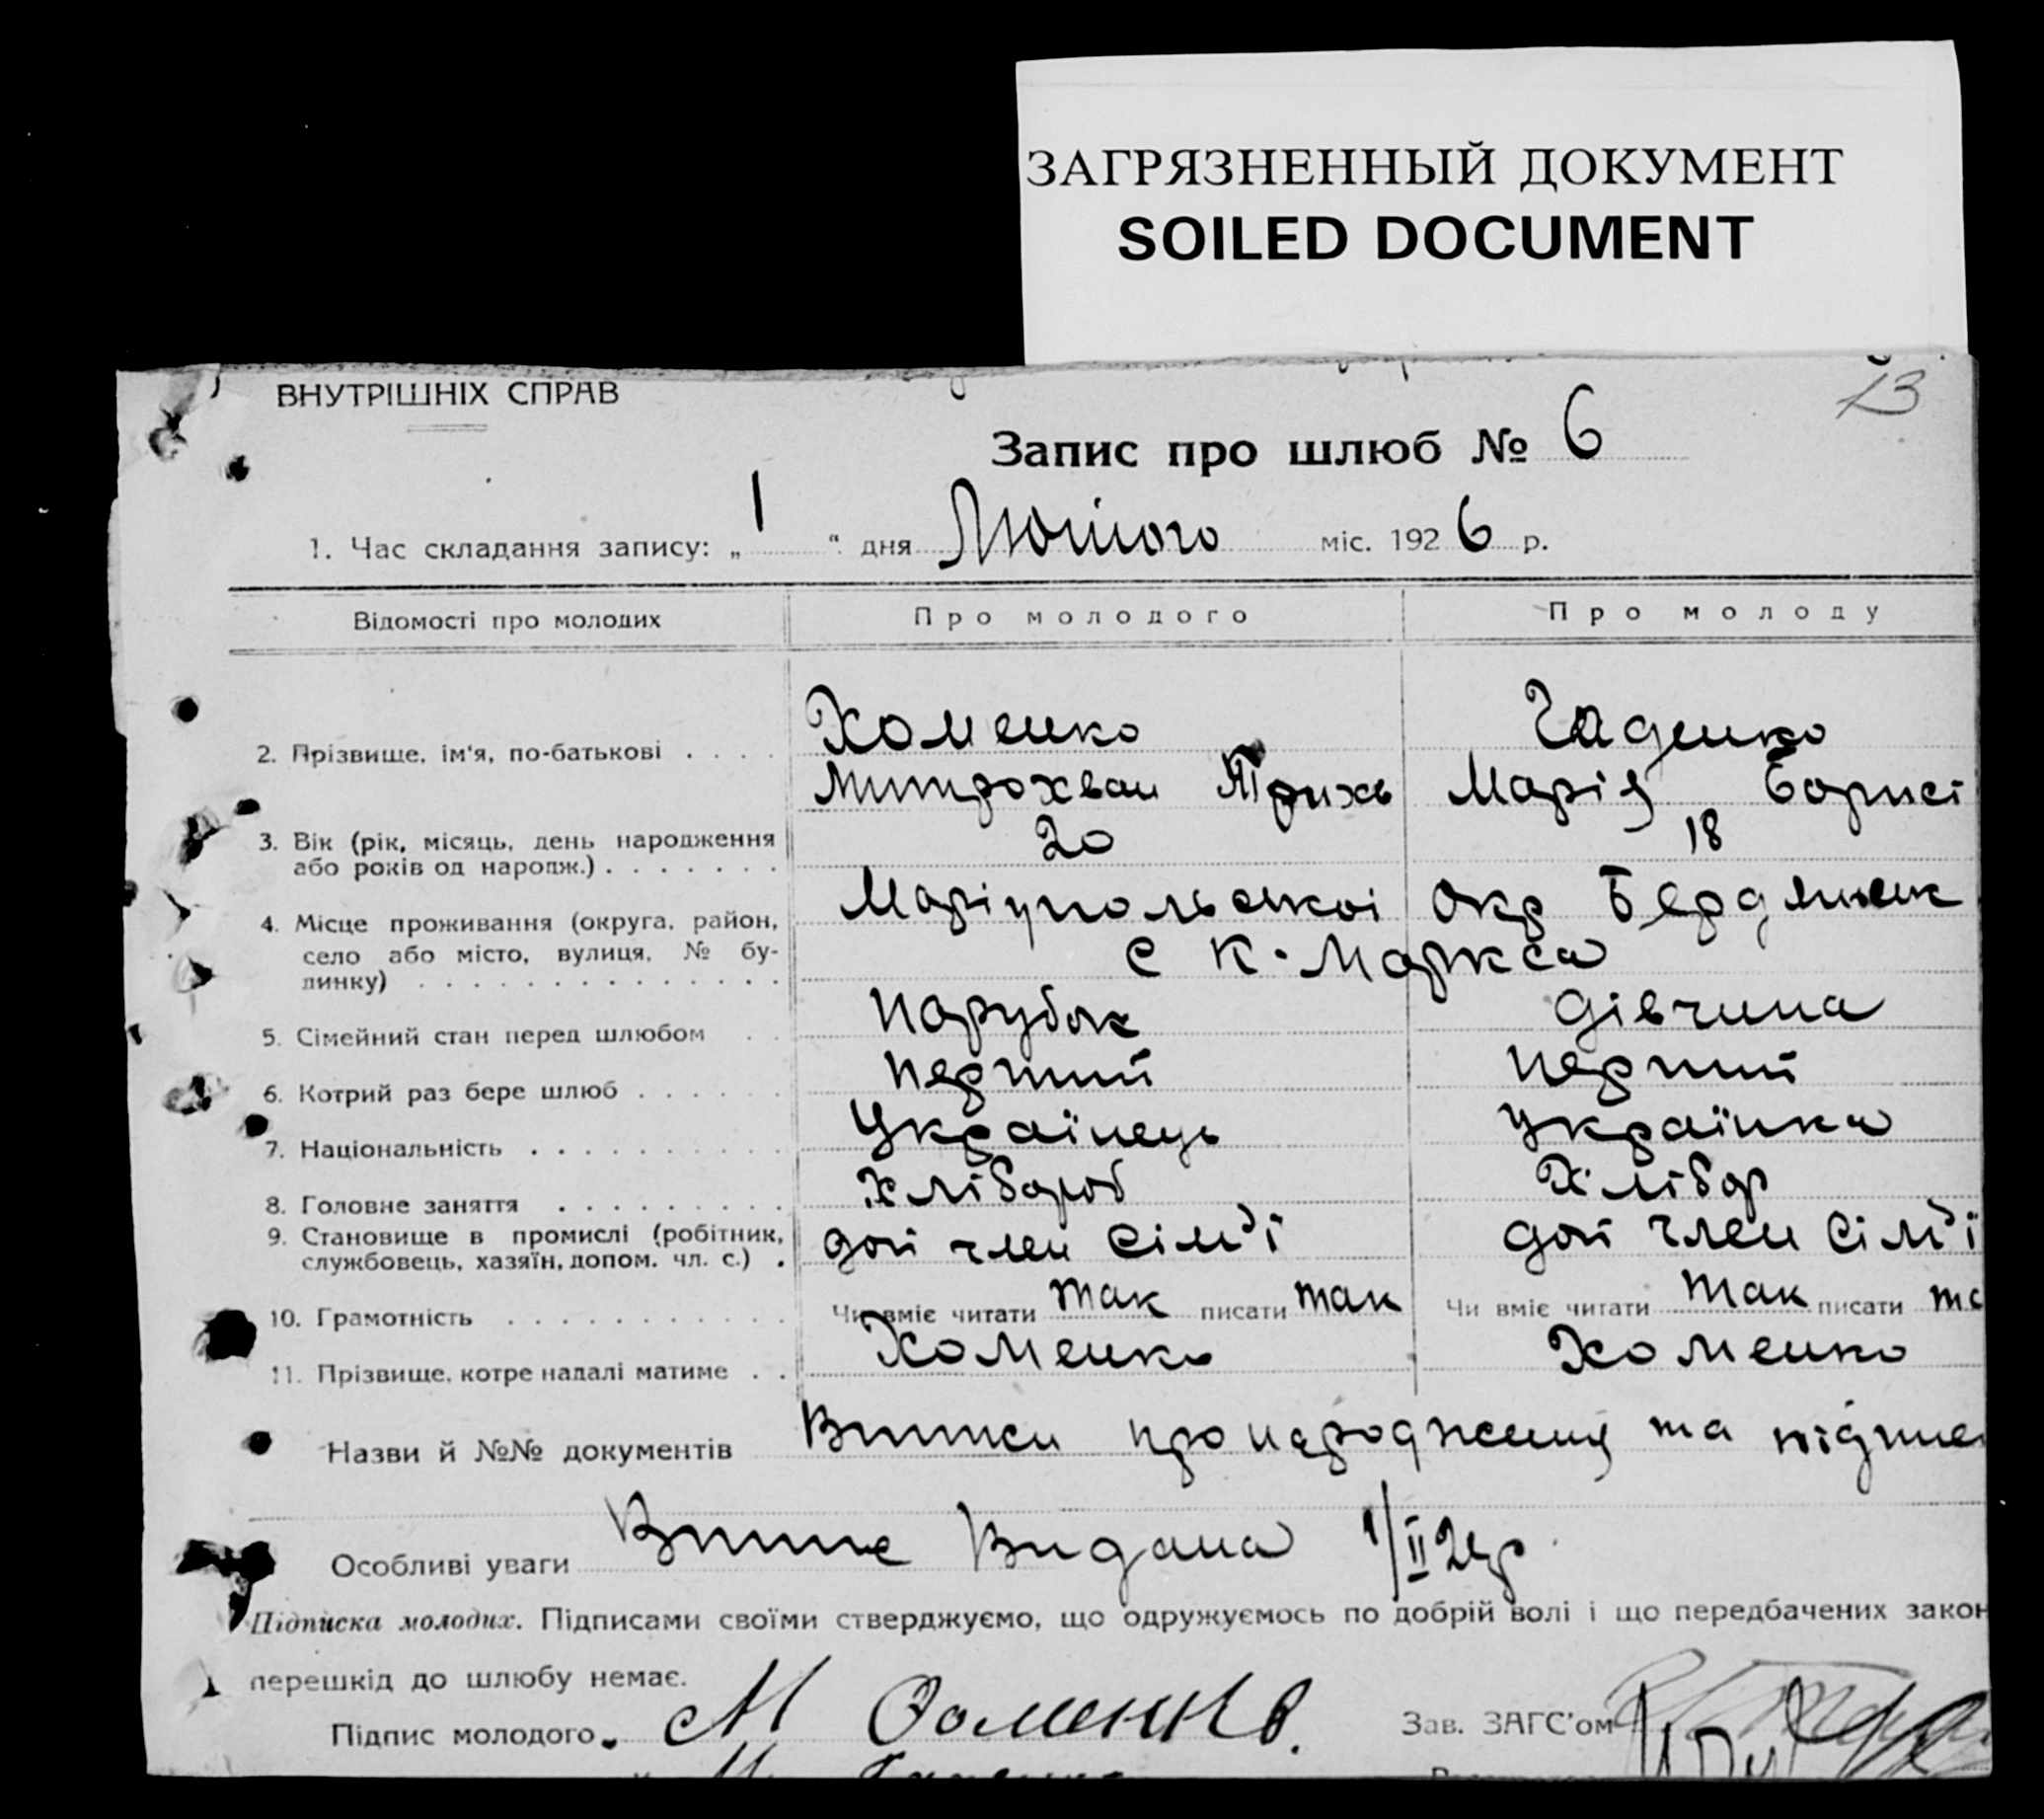 ЗАГРЯЗНЕННЫЙ ДОКУМЕНТ
SOILED DOCUMENT
ВНУТРІШНІХ СПРАВ
13
Запис про шлюб № 6
1. Час складання запису: „ 1 “ дня Лютого міс. 1926 р.
Відомості про молодих Про молодого Про молоду
Хоменко Гаденко
2. Прізвище, ім'я, по-батькові . . . .
Митрохван Трихв Марія Борисі
3. Вік (рік, місяць, день народження 20 18
або років од народж.) . . . . . . .
Маріупольської Окр Бердянськ
4. Місце проживання (округа, район,
село або місто, вулиця, № бу- с К. Маркса
динку) . . . . . . . . . . . . . .
5. Сімейний стан перед шлюбом . . парубок дівчина
6. Котрий раз бере шлюб . . . . . . перший перший
7. Національність . . . . . . . . . . Українець Українка
8. Головне заняття . . . . . . . . . Хлібороб Хлібор
9. Становище в промислі (робітник, доп член сім'ї доп член сім'ї
службовець, хазяїн, допом. чл. с.) .
10. Грамотність . . . . . . . . . . . Чи вміє читати так писати так Чи вміє читати так писати та
11. Прізвище, котре надалі матиме . . Хоменко Хоменко
Назви й №№ документів Виписи про народження та підпис
Особливі уваги Випис Видана 1/II 26р
Підписка молодих. Підписами своїми стверджуємо, що одружуємось по добрій волі і що передбачених закон
перешкід до шлюбу немає.
Підпис молодого М Хоменко. Зав. ЗАГС'ом